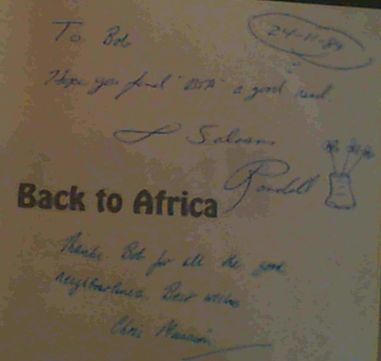 To Bob
24-11-89
Hope you find "BTA" a good read.
Salaams
Back to Africa
Thanks Bob for all the good
neighbourliness. Best wishes
Chris